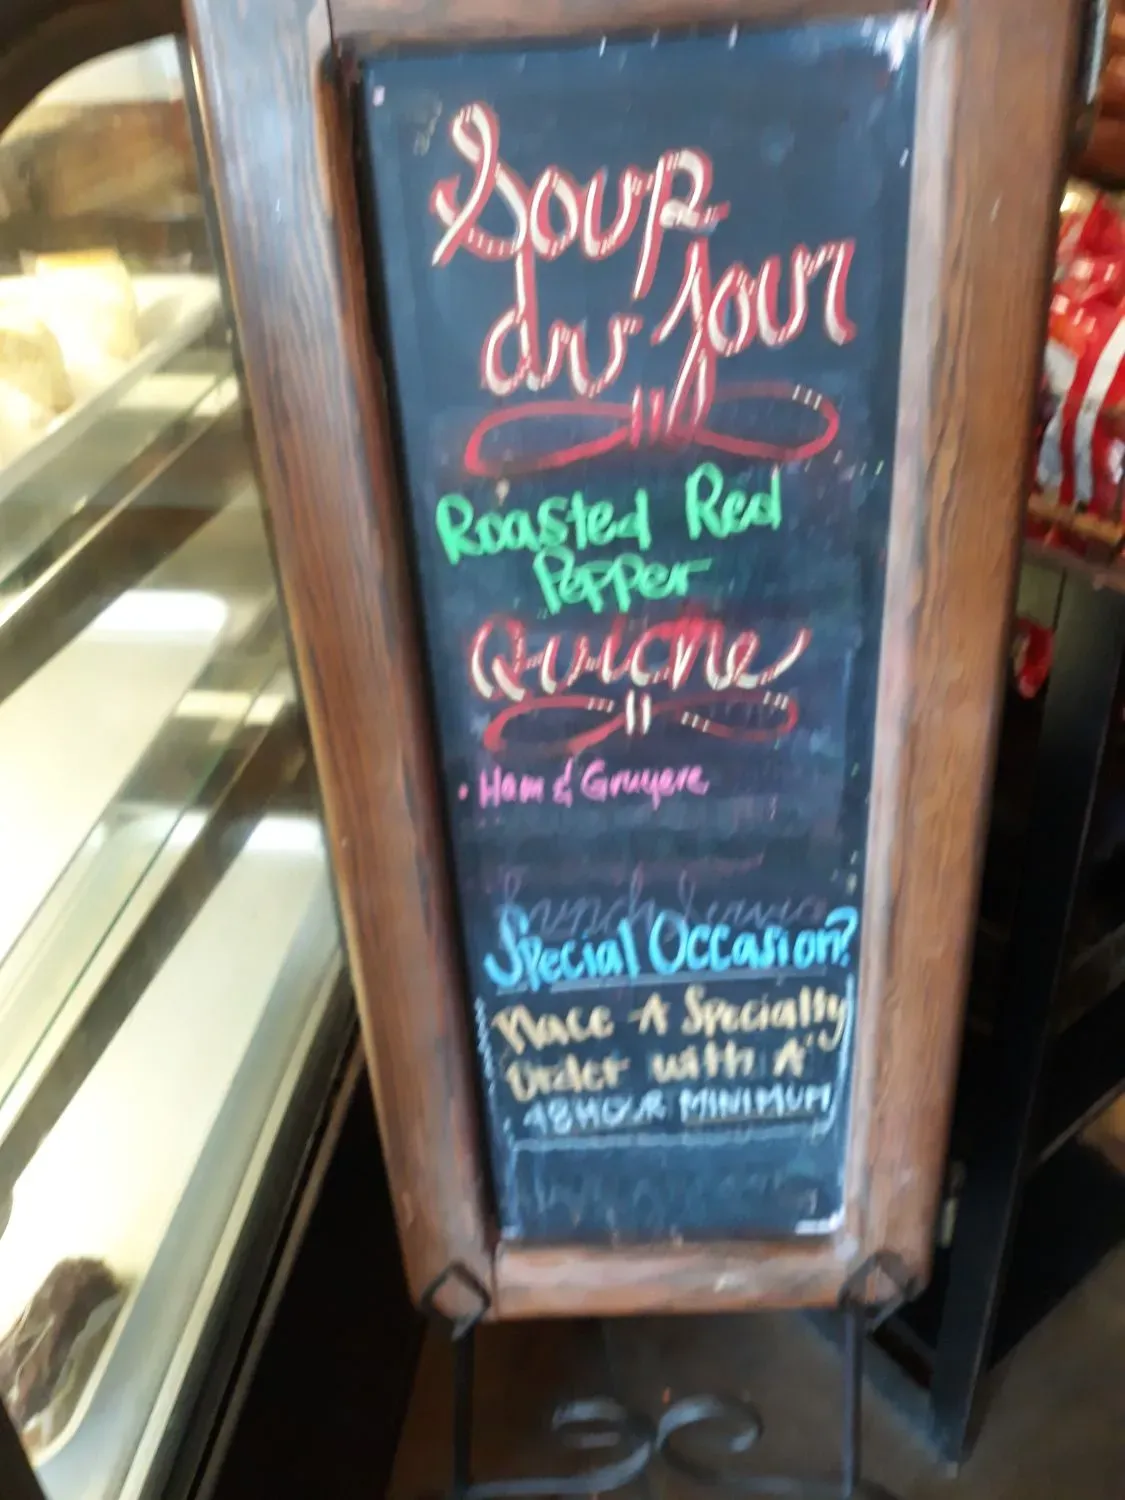 Soup
du Jour
Roasted Red
Pepper
Quiche
• Ham & Gruyere
Lunch Service
Special Occasion?
Place A Specialty
Order with A
48 HOUR MINIMUM